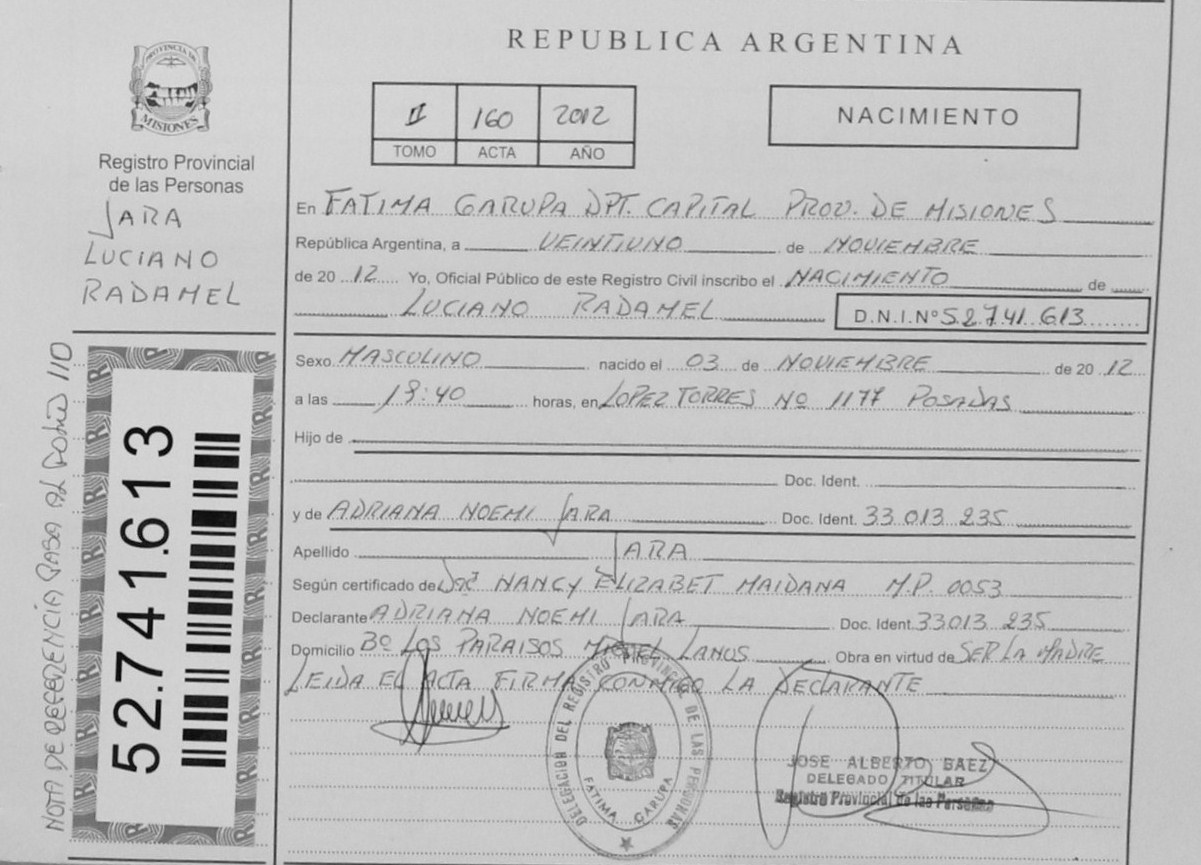 PROVINCIA DE
MISIONES
Registro Provincial
de las Personas
JARA
LUCIANO
RADAMEL
NOTA DE REFERENCIA PASA AL DORSO 110
52.741.613
REPUBLICA ARGENTINA
II 160 2012
TOMO ACTA AÑO
NACIMIENTO
En FATIMA GARUPA DPT. CAPITAL PROV. DE MISIONES
República Argentina, a VEINTIUNO de NOVIEMBRE
de 20 12 Yo, Oficial Público de este Registro Civil inscribo el NACIMIENTO de
LUCIANO RADAMEL D.N.I.Nº 52.741.613
Sexo MASCULINO nacido el 03 de NOVIEMBRE de 20 12
a las :40 horas, en LOPEZ TORRES Nº 1177 POSADAS
Hijo de
Doc. Ident.
y de ADRIANA NOEMI JARA Doc. Ident. 33.013.235
Apellido JARA
Según certificado de NANCY ELIZABET MAIDANA M.P. 0053
Declarante ADRIANA NOEMI JARA Doc. Ident. 33013.235
Domicilio Bº LOS PARAISOS MIGUEL LANUS Obra en virtud de SER LA MADRE
LEIDA EL ACTA FIRMA CONMIGO LA DECLARANTE
DELEGACION DEL REGISTRO PROVINCIAL DE LAS PERSONAS
FATIMA GARUPA
JOSE ALBERTO BAEZ
DELEGADO TITULAR
Registro Provincial de las Personas